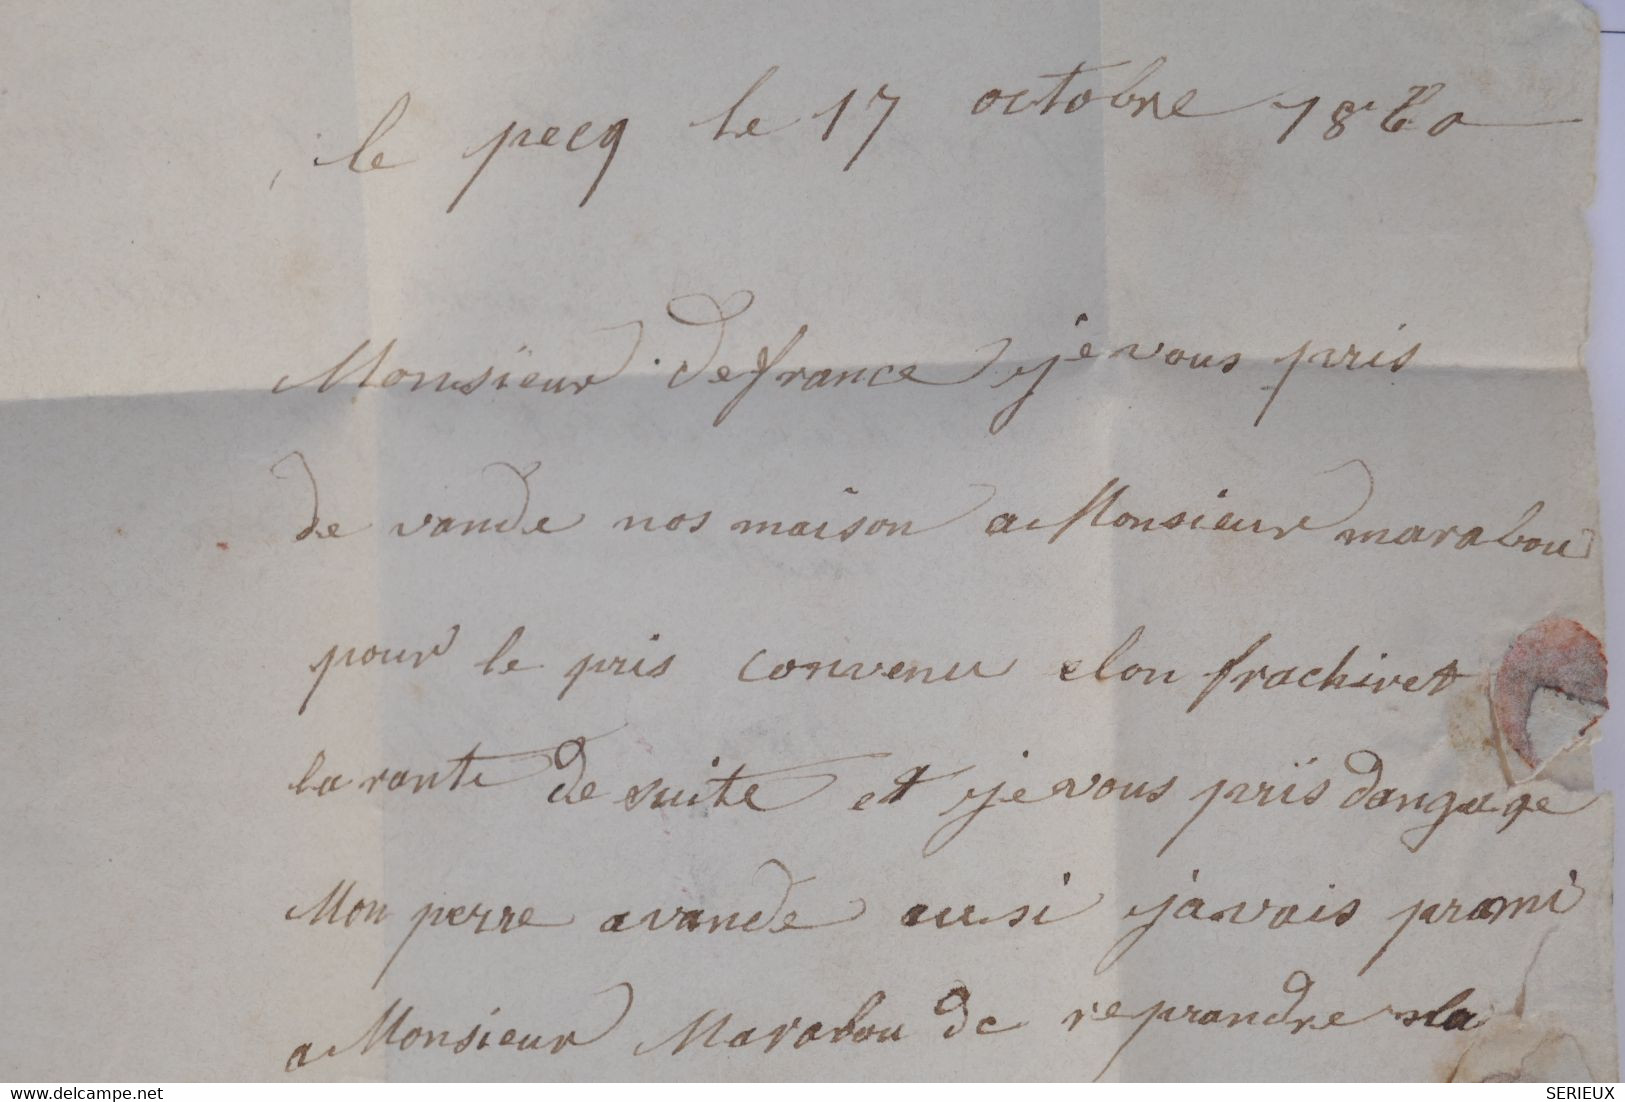 le pecq le 17 octobre 1860
Monsieur defrance je vous pris
de vande nos maison a Monsieur marabou
pour le pris convenu elon frachiret
la vante de suite et je vous pris dangage
Mon perre avande ausi javais promi
a Monsieur Marabou de reprandre la
www.delcampe.net
SERIEUX